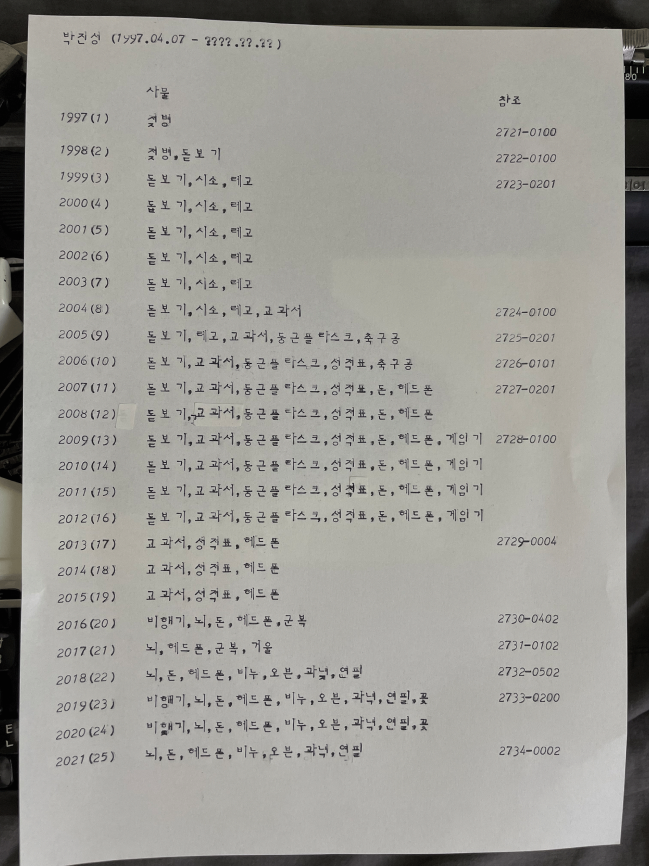 박진성 (1997.04.07 - ????.??.??)
사물 참조
1997(1) 젖병 2721-0100
1998(2) 젖병,돋보기 2722-0100
1999(3) 돋보기,시소,레고 2723-0201
2000(4) 돋보기,시소,레고
2001(5) 돋보기,시소,레고
2002(6) 돋보기,시소,레고
2003(7) 돋보기,시소,레고
2004(8) 돋보기,시소,레고,교과서 2724-0100
2005(9) 돋보기,레고,교과서,둥근플라스크,축구공 2725-0201
2006(10) 돋보기,교과서,둥근플라스크,성적표,축구공 2726-0101
2007(11) 돋보기,교과서,둥근플라스크,성적표,돈,헤드폰 2727-0201
2008(12) 돋보기,교과서,둥근플라스크,성적표,돈,헤드폰
2009(13) 돋보기,교과서,둥근플라스크,성적표,돈,헤드폰,게임기 2728-0100
2010(14) 돋보기,교과서,둥근플라스크,성적표,돈,헤드폰,게임기
2011(15) 돋보기,교과서,둥근플라스크,성적표,돈,헤드폰,게임기
2012(16) 돋보기,교과서,둥근플라스크,성적표,돈,헤드폰,게임기
2013(17) 교과서,성적표,헤드폰 2729-0004
2014(18) 교과서,성적표,헤드폰
2015(19) 교과서,성적표,헤드폰
2016(20) 비행기,뇌,돈,헤드폰,군복 2730-0402
2017(21) 뇌,헤드폰,군복,거울 2731-0102
2018(22) 뇌,돈,헤드폰,비누,오븐,과녁,연필 2732-0502
2019(23) 비행기,뇌,돈,헤드폰,비누,오븐,과녁,연필,꽃 2733-0200
2020(24) 비행기,뇌,돈,헤드폰,비누,오븐,과녁,연필,꽃
2021(25) 뇌,돈,헤드폰,비누,오븐,과녁,연필 2734-0002
80